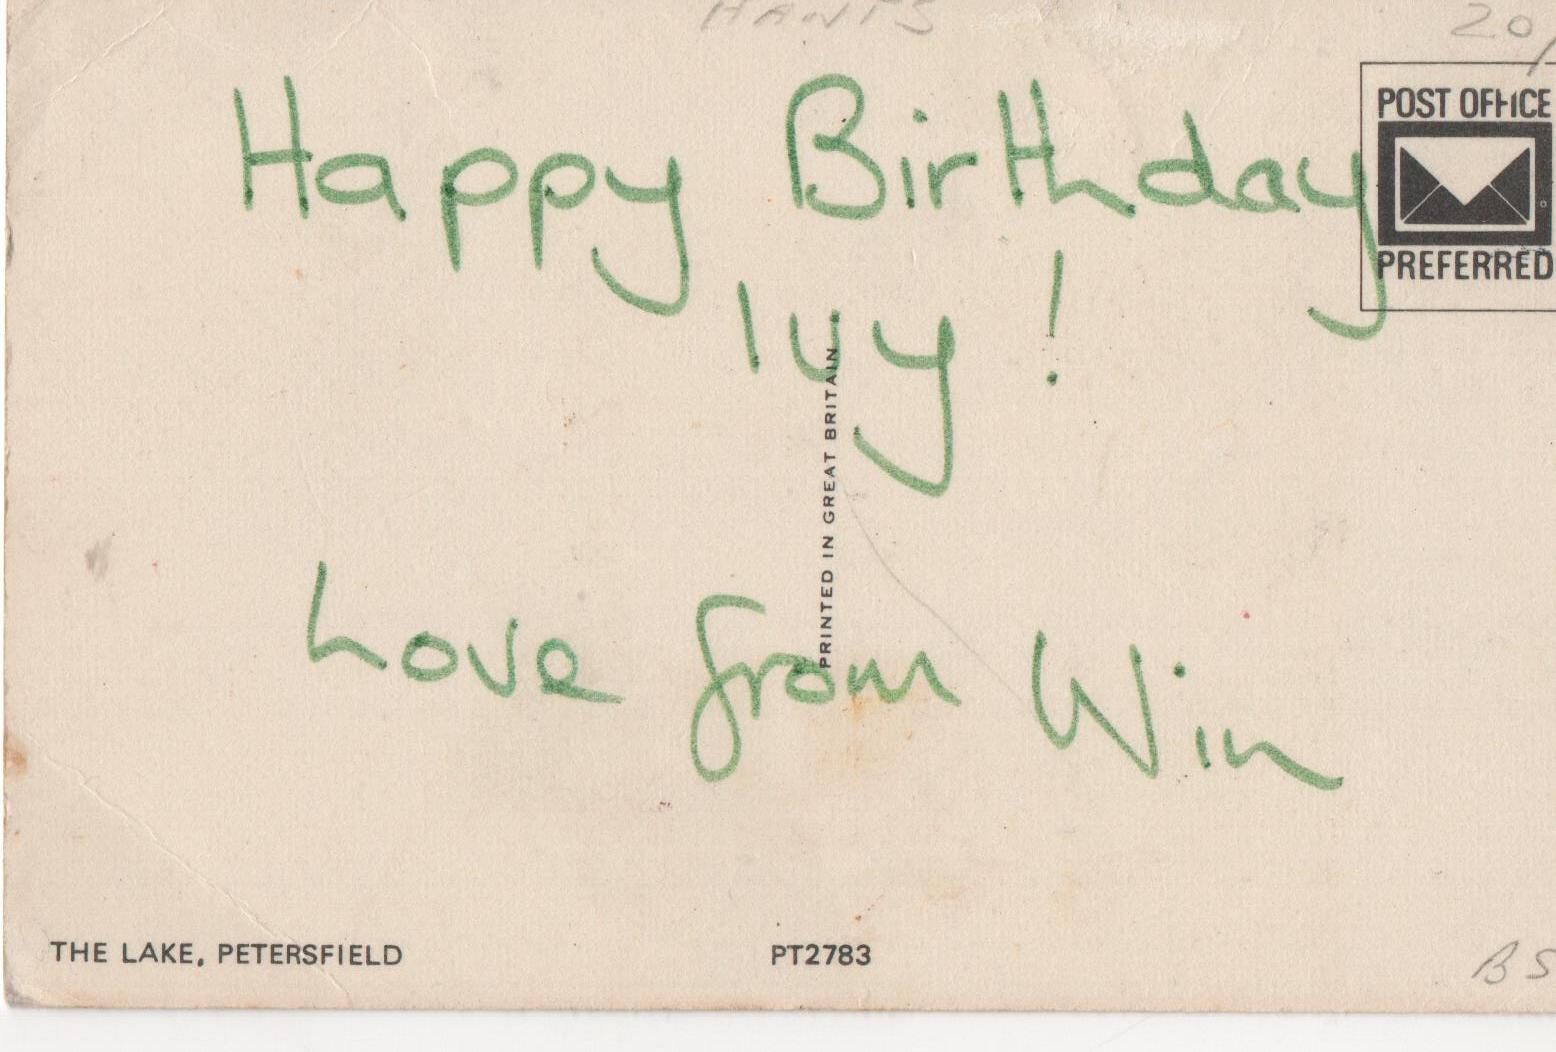 HANTS
20/
POST OFFICE
PREFERRED
Happy Birthday
Ivy!
PRINTED IN GREAT BRITAIN
Love from Win
THE LAKE, PETERSFIELD
PT2783
BS